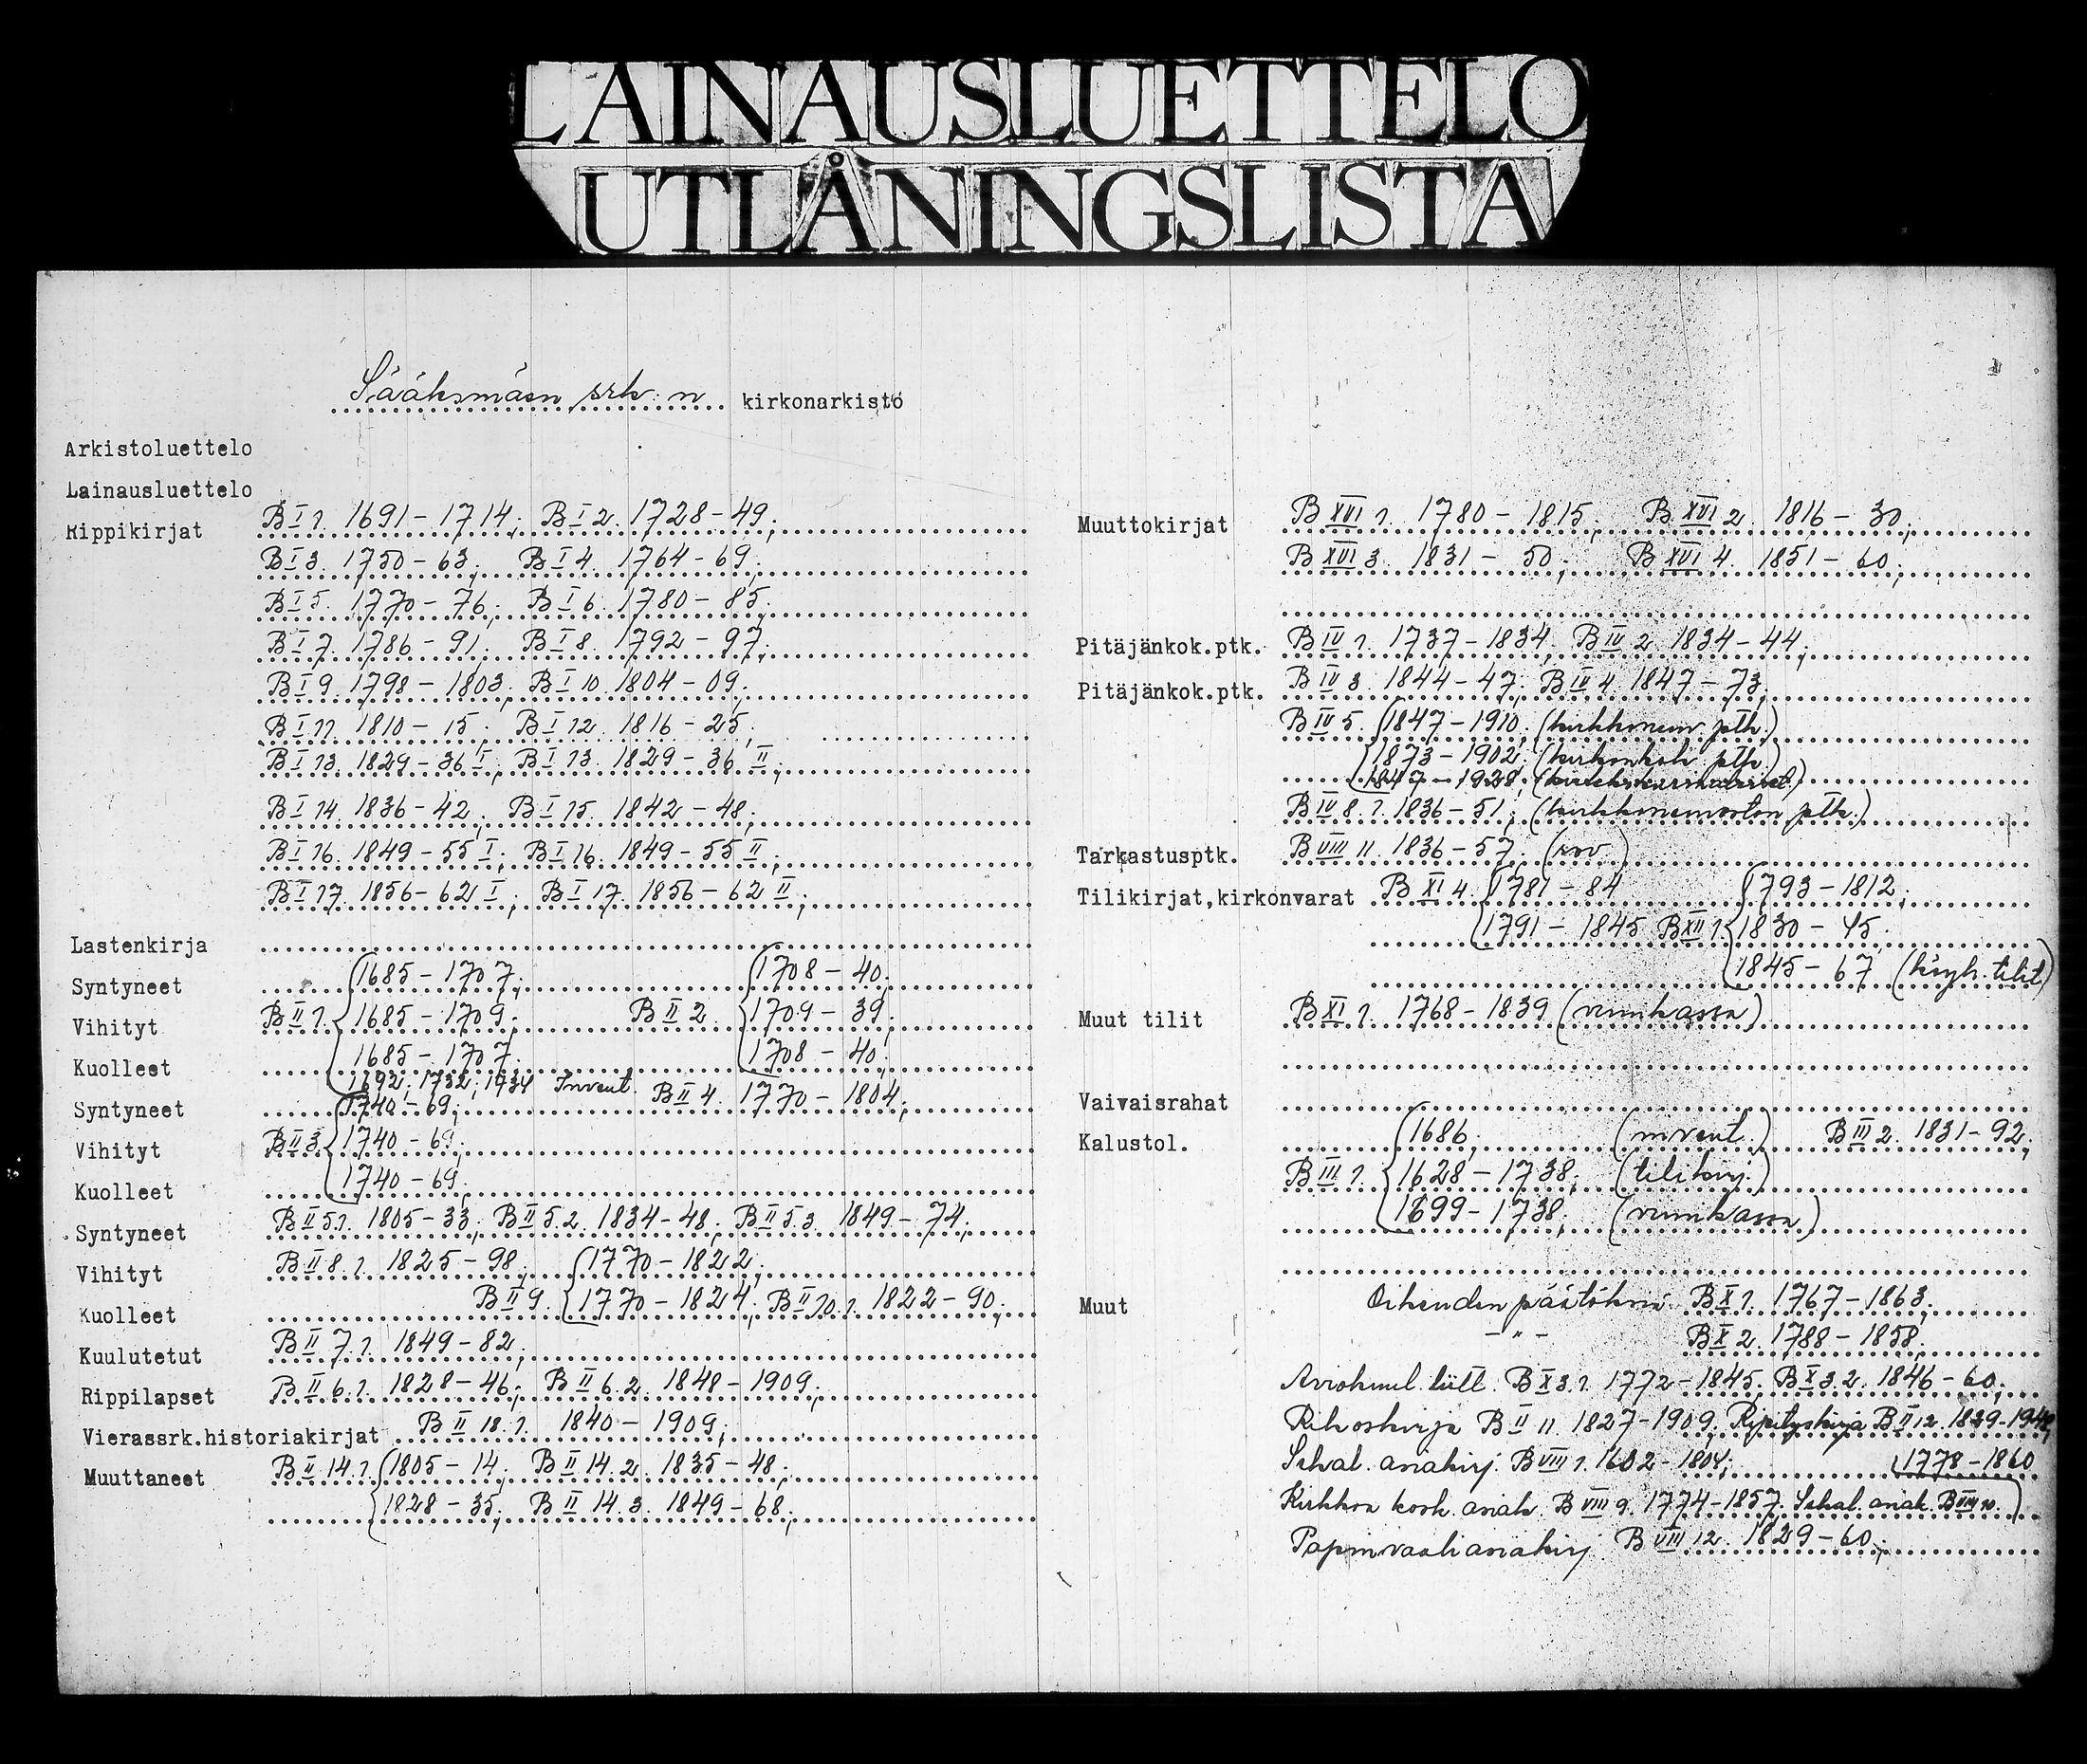 LAINAUSLUETTELO
UTLÅNINGSLISTA
Sääksmäen srk:n kirkonarkisto
Arkistoluettelo
Lainausluettelo
Rippikirjat B I 1. 1691-1714; B I 2. 1728-49;
B I 3. 1750-63; B I 4. 1764-69;
B I 5. 1770-76; B I 6. 1780-85;
B I 7. 1786-91; B I 8. 1792-97;
B I 9. 1798-1803; B I 10. 1804-09;
B I 11. 1810-15; B I 12. 1816-25;
B I 13. 1829-36 I; B I 13. 1829-36 II;
B I 14. 1836-42; B I 15. 1842-48;
B I 16. 1849-55 I; B I 16. 1849-55 II;
B I 17. 1856-62 I; B I 17. 1856-62 II;
Lastenkirja
Syntyneet 1685-1707; 1708-40;
Vihityt B II 1. 1685-1709; B II 2. 1709-39;
Kuolleet 1685-1707; 1708-40;
1692; 1732; 1734 Invent.
Syntyneet 1740-69; B II 4. 1770-1804;
Vihityt B II 3. 1740-69;
Kuolleet 1740-69;
Syntyneet B II 5.1. 1805-33; B II 5.2. 1834-48; B II 5.3. 1849-74;
Vihityt B II 8.1. 1825-98; 1770-1822;
Kuolleet B II 9. 1770-1824; B II 10.1. 1822-90;
Kuulutetut B II 7.1. 1849-82;
Rippilapset B II 6.1. 1828-46; B II 6.2. 1848-1909;
Vierassrk.historiakirjat B II 18.1. 1840-1909;
Muuttaneet B II 14.1. 1805-14; B II 14.2. 1835-48;
1828-35; B II 14.3. 1849-68;
Muuttokirjat B XVI 1. 1780-1815; B XVI 2. 1816-30;
B XVI 3. 1831-50; B XVI 4. 1851-60;
Pitäjänkok.ptk. B IV 1. 1737-1834; B IV 2. 1834-44;
Pitäjänkok.ptk. B IV 3. 1844-47; B IV 4. 1847-73;
B IV 5. 1847-1910; (kirkkoneuv. ptk.)
1873-1902; (kirkonkok. ptk.)
1847-1928;
B IV 8.1. 1836-51; (kirkkoneuvoston ptk.)
Tarkastusptk. B VIII 11. 1836-57. (rov.)
Tilikirjat,kirkonvarat B XI 4. 1781-84 1793-1812;
1791-1845 B XII 1. 1830-45;
1845-67 (köyh. tilit)
Muut tilit B XI 1. 1768-1839 (viinikassa)
Vaivaisrahat
Kalustol. 1686; (invent.) B III 2. 1831-92;
B III 1. 1628-1738; (tilikirj.)
1699-1738; (viinikassa)
Muut Oikeuden päätöksiä B X 1. 1767-1863;
- " - B X 2. 1788-1858;
Aviokuul. luett. B X 3.1. 1772-1845; B X 3.2. 1846-60;
Rikoskirja B II 11. 1827-1909; Ripityskirja B II 12. 1829-1949;
Sekal. asiakirj. B VIII 1. 1602-1804; 1778-1860
Kirkkoa kosk. asiak. B VIII 9. 1774-1857. Sekal. asiak. B VIII 10.
Papinvaaliasiakirj. B VIII 12. 1829-60;